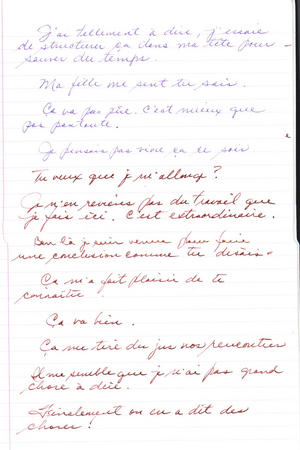 J'ai tellement à dire, j'essaie
de structurer ça dans ma tête pour
sauver du temps.
Ma fille me sent tu sais.
Ça va pas pire. C'est mieux que
pas pantoute.
Je pensais pas vivre ça ce soir
Tu veux que je m'allonge?
Je n'en reviens pas du travail que
je fais ici. C'est extraordinaire.
Bon là je suis venue pour faire
une conclusion comme tu disais.
Ça m'a fait plaisir de te
connaître.
Ça va bien.
Ça me tire du jus nos rencontres
Il me semble que je n'ai pas grand
chose à dire.
Finalement on en a dit des
choses!